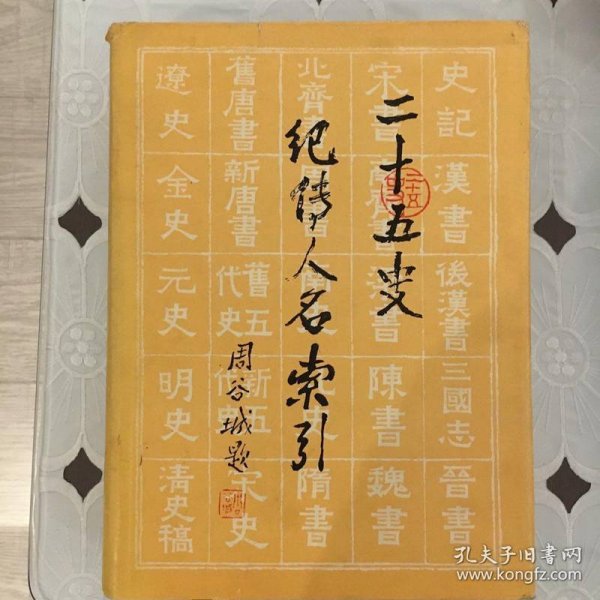 二十五史
紀傳人名索引
周谷城題
史記
漢書
後漢書
三國志
晉書
宋書
陳書
魏書
北齊書
隋書
舊唐書
新唐書
舊五代史
新五代史
宋史
遼史
金史
元史
明史
清史稿
孔夫子旧书网
www.kongfz.com